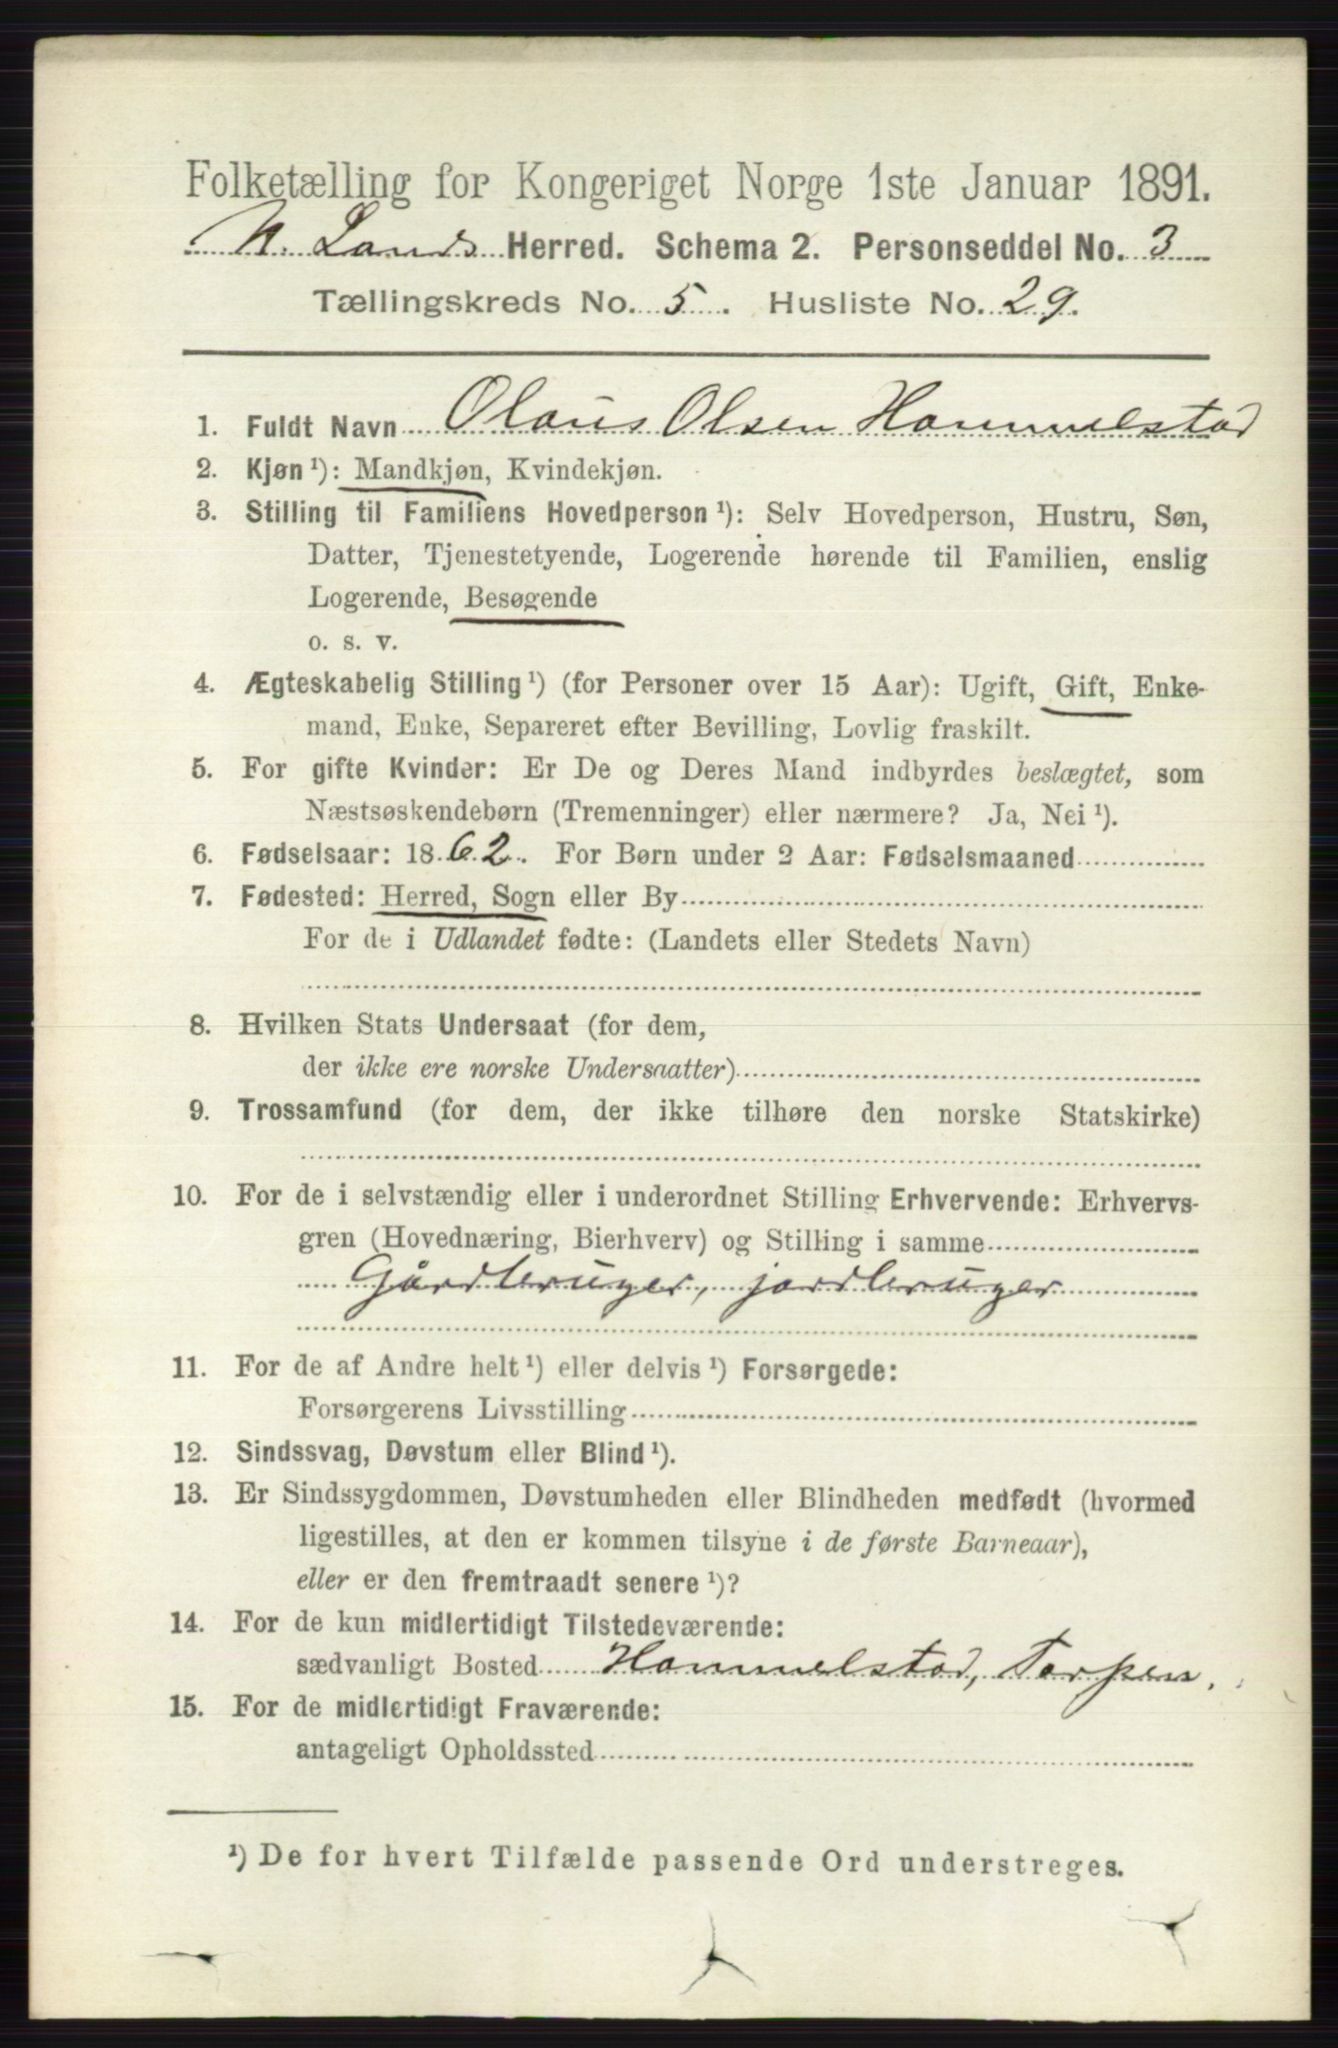 Folketælling for Kongeriget Norge 1ste Januar 1891.
N. Lands Herred. Schema 2. Personseddel No. 3
Tællingskreds No. 5. Husliste No. 29.
1. Fuldt Navn Olaus Olsen Hammelstad
2. Kjøn ¹): Mandkjøn, Kvindekjøn.
3. Stilling til Familiens Hovedperson ¹): Selv Hovedperson, Hustru, Søn,
Datter, Tjenestetyende, Logerende hørende til Familien, enslig
Logerende, Besøgende
o. s. v.
4. Ægteskabelig Stilling ¹) (for Personer over 15 Aar): Ugift, Gift, Enke-
mand, Enke, Separeret efter Bevilling, Lovlig fraskilt.
5. For gifte Kvinder: Er De og Deres Mand indbyrdes beslægtet, som
Næstsøskendebørn (Tremenninger) eller nærmere? Ja, Nei ¹).
6. Fødselsaar: 1862. For Børn under 2 Aar: Fødselsmaaned
7. Fødested: Herred, Sogn eller By
For de i Udlandet fødte: (Landets eller Stedets Navn)
8. Hvilken Stats Undersaat (for dem,
der ikke ere norske Undersaatter)
9. Trossamfund (for dem, der ikke tilhøre den norske Statskirke)
10. For de i selvstændig eller i underordnet Stilling Erhvervende: Erhvervs-
gren (Hovednæring, Bierhverv) og Stilling i samme
Gårdbruger, jordbruger
11. For de af Andre helt ¹) eller delvis ¹) Forsørgede:
Forsørgerens Livsstilling
12. Sindssvag, Døvstum eller Blind ¹).
13. Er Sindssygdommen, Døvstumheden eller Blindheden medfødt (hvormed
ligestilles, at den er kommen tilsyne i de første Barneaar),
eller er den fremtraadt senere ¹)?
14. For de kun midlertidigt Tilstedeværende:
sædvanligt Bosted Hammelstad, Torpen.
15. For de midlertidigt Fraværende:
antageligt Opholdssted
¹) De for hvert Tilfælde passende Ord understreges.